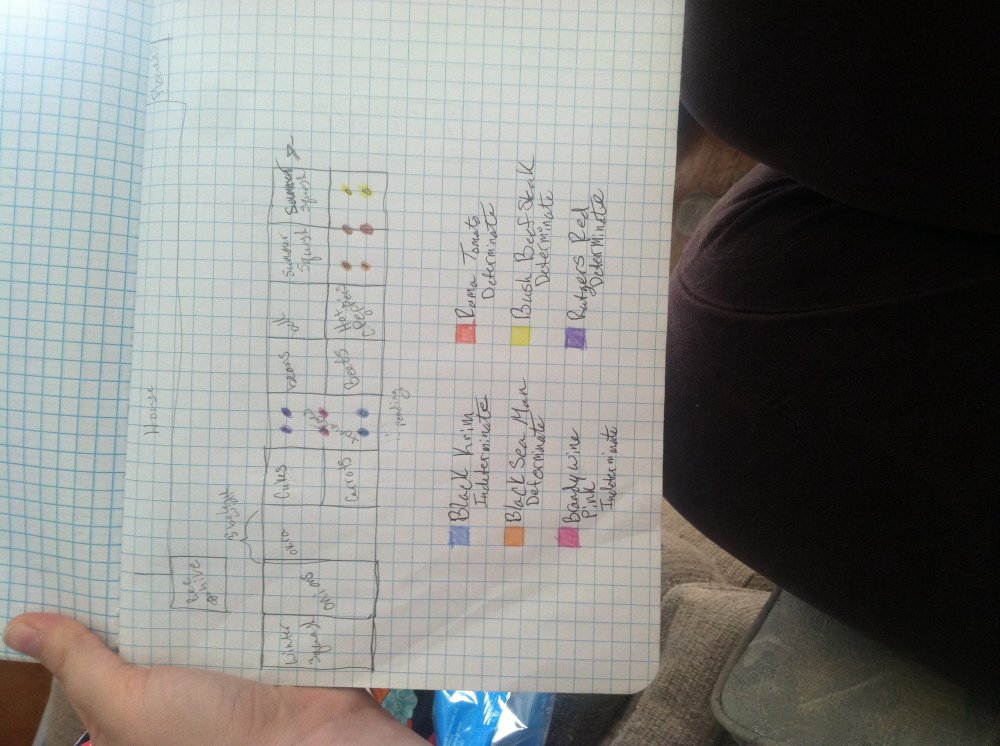 House
Bee
hive
Winter
Squash
Onions
Cukes
Carrots
beans
Beets
Hot
Summer
Squash
Summer
Squash
pending
Black Krim
Indeterminate
Black Sea Man
Determinate
Brandywine
Pink
Indeterminate
Roma Tomato
Determinate
Bush Beef Steak
Determinate
Rutgers Red
Determinate